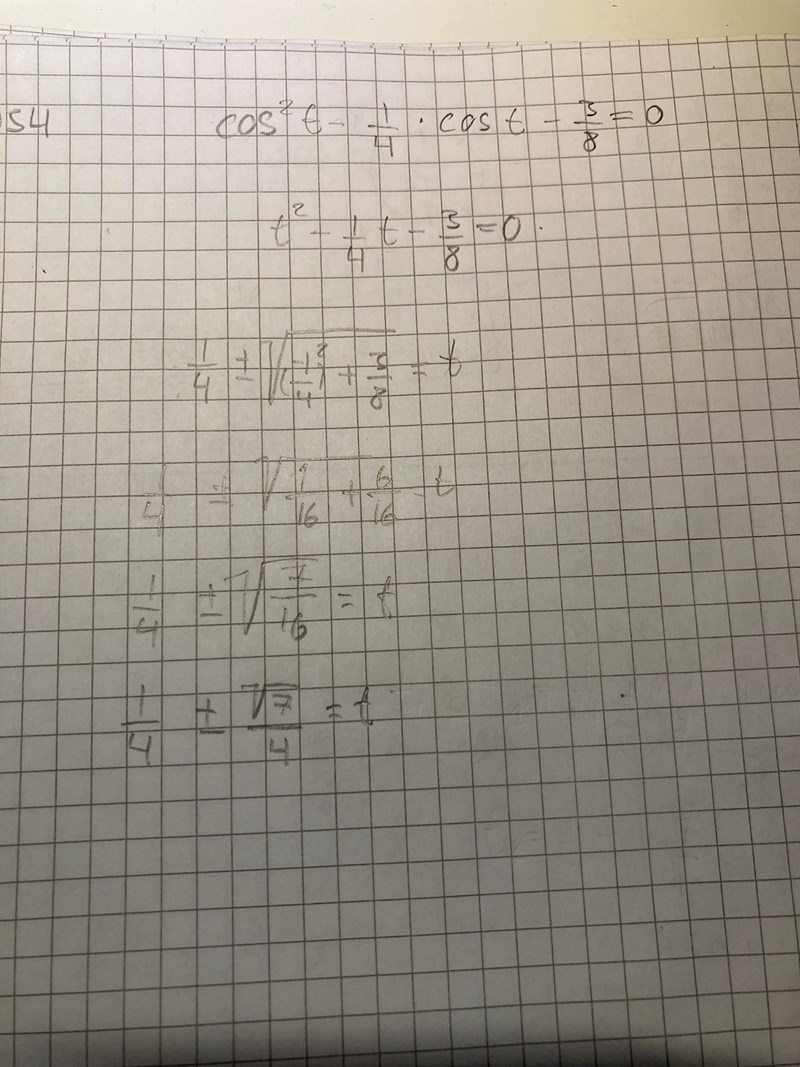 054 cos² t - 1/4 · cos t - 3/8 = 0
t² - 1/4 t - 3/8 = 0.
1/4 ± √((1/4)² + 3/8) = t
1/4 ± √(1/16 + 6/16) = t
1/4 ± √(7/16) = t
1/4 ± √7/4 = t